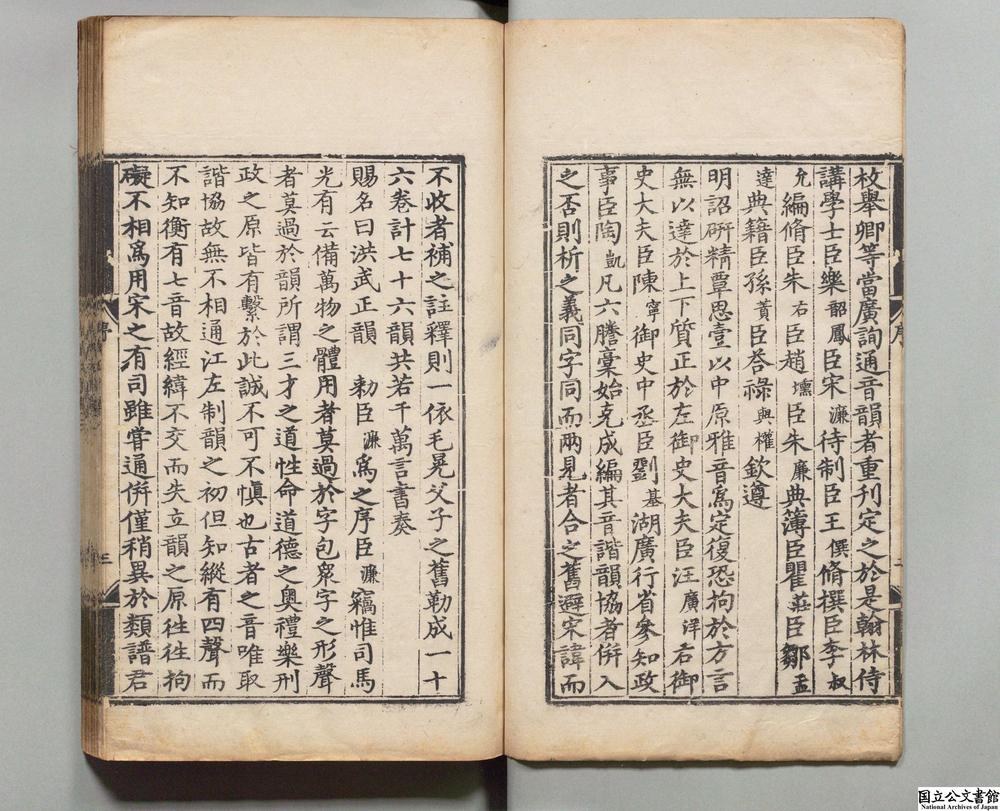 枚舉卿等當廣詢通音韻者重刊定之於是翰林侍
講學士臣樂韶鳳臣宋濂待制臣王僎脩撰臣李叔
允編脩臣朱右臣趙壎臣朱廉典簿臣瞿莊臣鄒孟
達典籍臣孫蕡臣荅祿與權欽遵
明詔研精覃思壹以中原雅音爲定復恐拘於方言
無以達於上下質正於左御史大夫臣汪廣洋右御
史大夫臣陳寧御史中丞臣劉基湖廣行省參知政
事臣陶凱凡六謄稾始克成編其音諧韻協者併入
之否則析之義同字同而兩見者合之舊避宋諱而
序
不收者補之註釋則一依毛晃父子之舊勒成一十
六卷計七十六韻共若干萬言書奏
賜名曰洪武正韻 勑臣濂爲之序臣濂竊惟司馬
光有云備萬物之體用者莫過於字包衆字之形聲
者莫過於韻所謂三才之道性命道德之奧禮樂刑
政之原皆有繫於此誠不可不愼也古者之音唯取
諧協故無不相通江左制韻之初但知縱有四聲而
不知衡有七音故經緯不交而失立韻之原徃徃拘
礙不相爲用宋之有司雖嘗通併僅稍異於類譜君
序
三
国立公文書館
National Archives of Japan